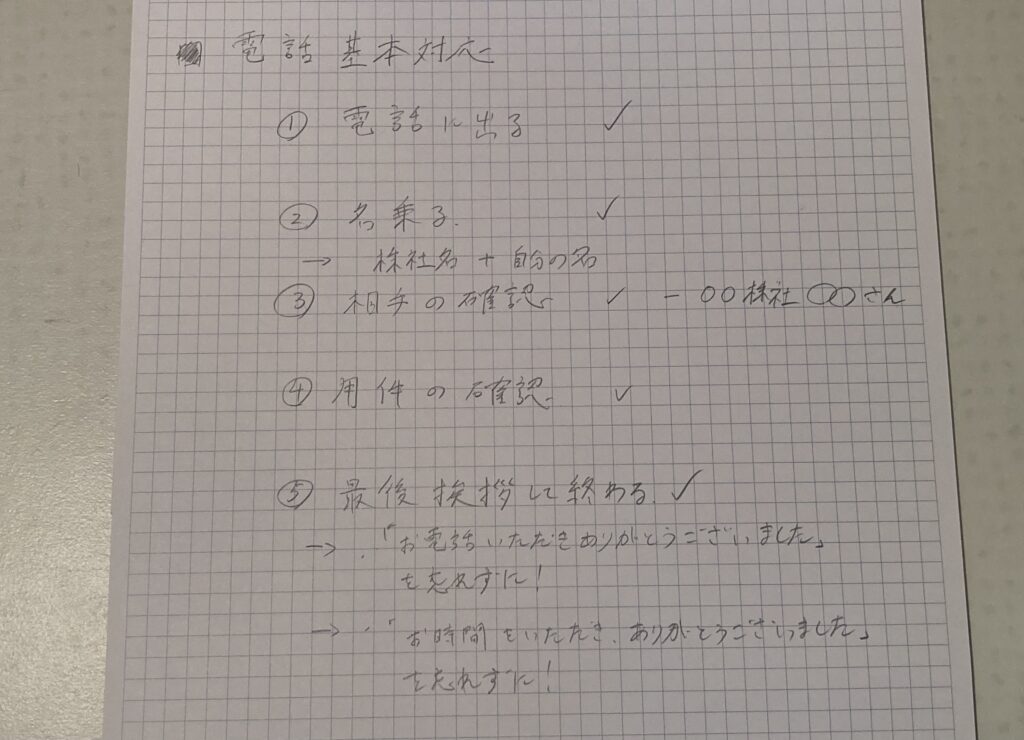 電話 基本対応
① 電話に出る ✓
② 名乗る. ✓
→ 株社名 + 自分の名
③ 相手の確認 ✓ − ○○株社 ○○さん
④ 用件の確認. ✓
⑤ 最後挨拶して終わる. ✓
→ ・「お電話いただきありがとうございました」
を忘れずに!
→ ・「お時間をいただき、ありがとうございました」
を忘れずに!